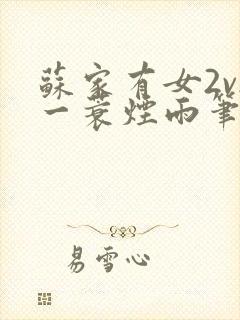 蘇家有女2v
一蓑煙雨筆
易雪心